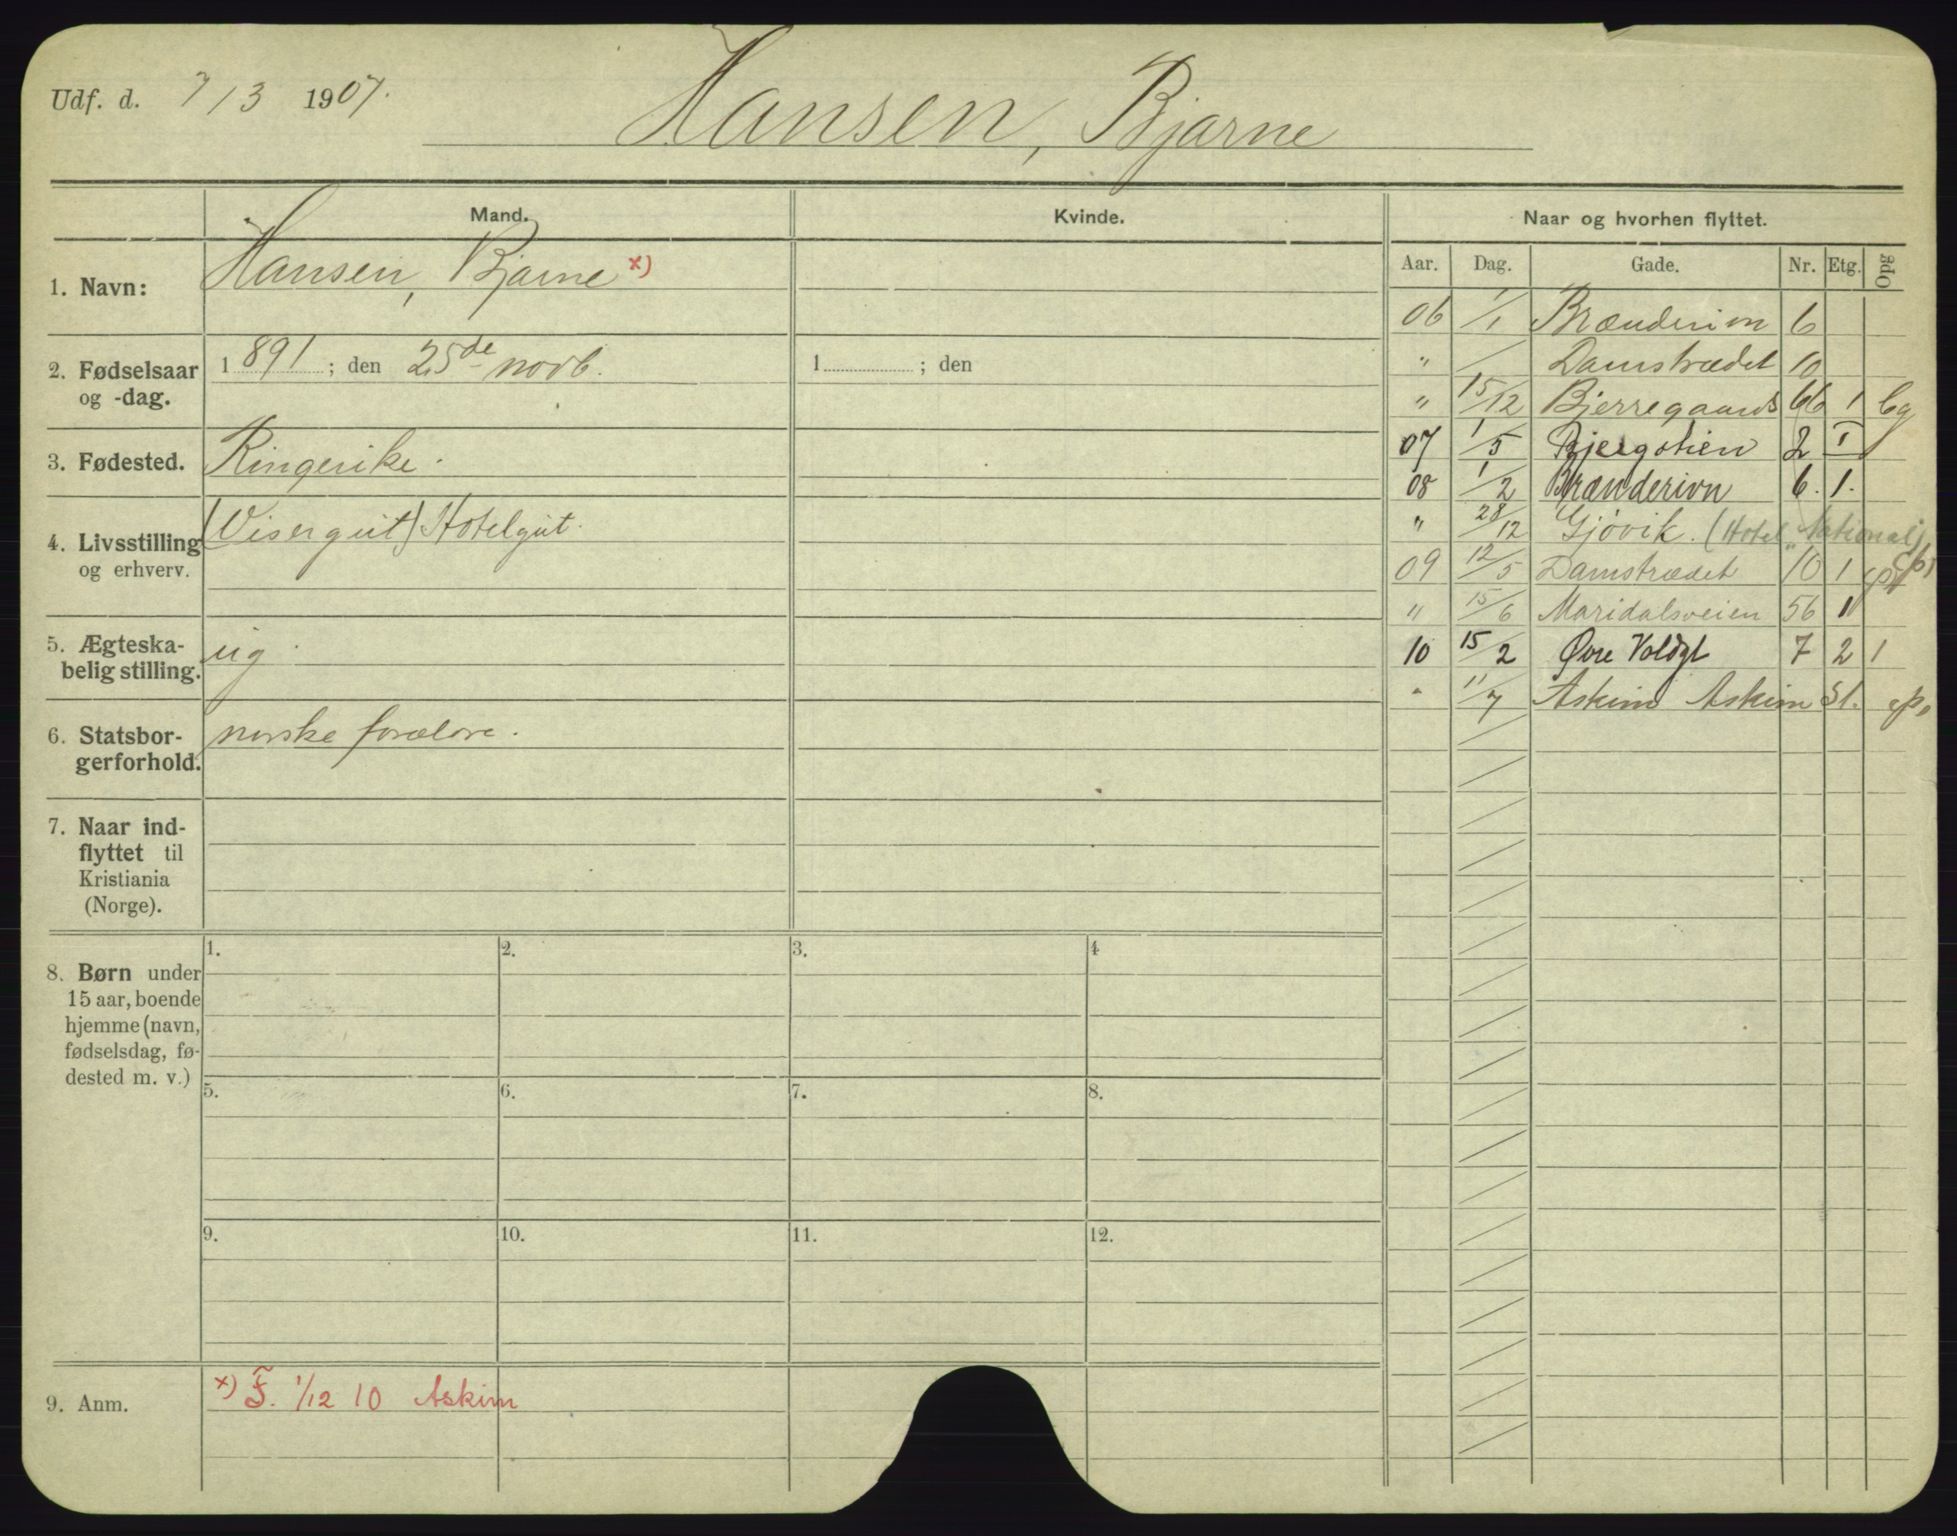 Udf. d. 7/3 1907.
Hansen, Bjarne
Mand.
Kvinde.
Naar og hvorhen flyttet.
Aar. Dag. Gade. Nr. Etg. Opg
1. Navn: Hansen, Bjarne x)
2. Fødselsaar og -dag.
1891; den 25de novb.
1 ; den
3. Fødested. Ringerike.
4. Livsstilling og erhverv.
(Visergut) Hotelgut.
5. Ægteska-
belig stilling.
ug.
6. Statsbor-
gerforhold.
norske forældre.
7. Naar ind-
flyttet til
Kristiania
(Norge).
8. Børn under
15 aar, boende
hjemme (navn,
fødselsdag, fø-
dested m. v.)
1. 2. 3. 4
5. 6. 7. 8.
9. 10. 11. 12.
9. Anm. x) F. 1/12 10 Askim
06 1/1 Brænderivn 6
" Damstrædet 10
" 15/12 Bjerregaards 66 1 bg
07 1/5 2 I
08 1/2 Brænderivn 6. 1.
" 28/12 Gjøvik. (Hotel "National)
09 12/5 Damstrædet 10 1
" 15/6 Maridalsveien 56 1
10 15/2 Øvre Voldgt 7 2 1
" 11/7 Askim Askim St.